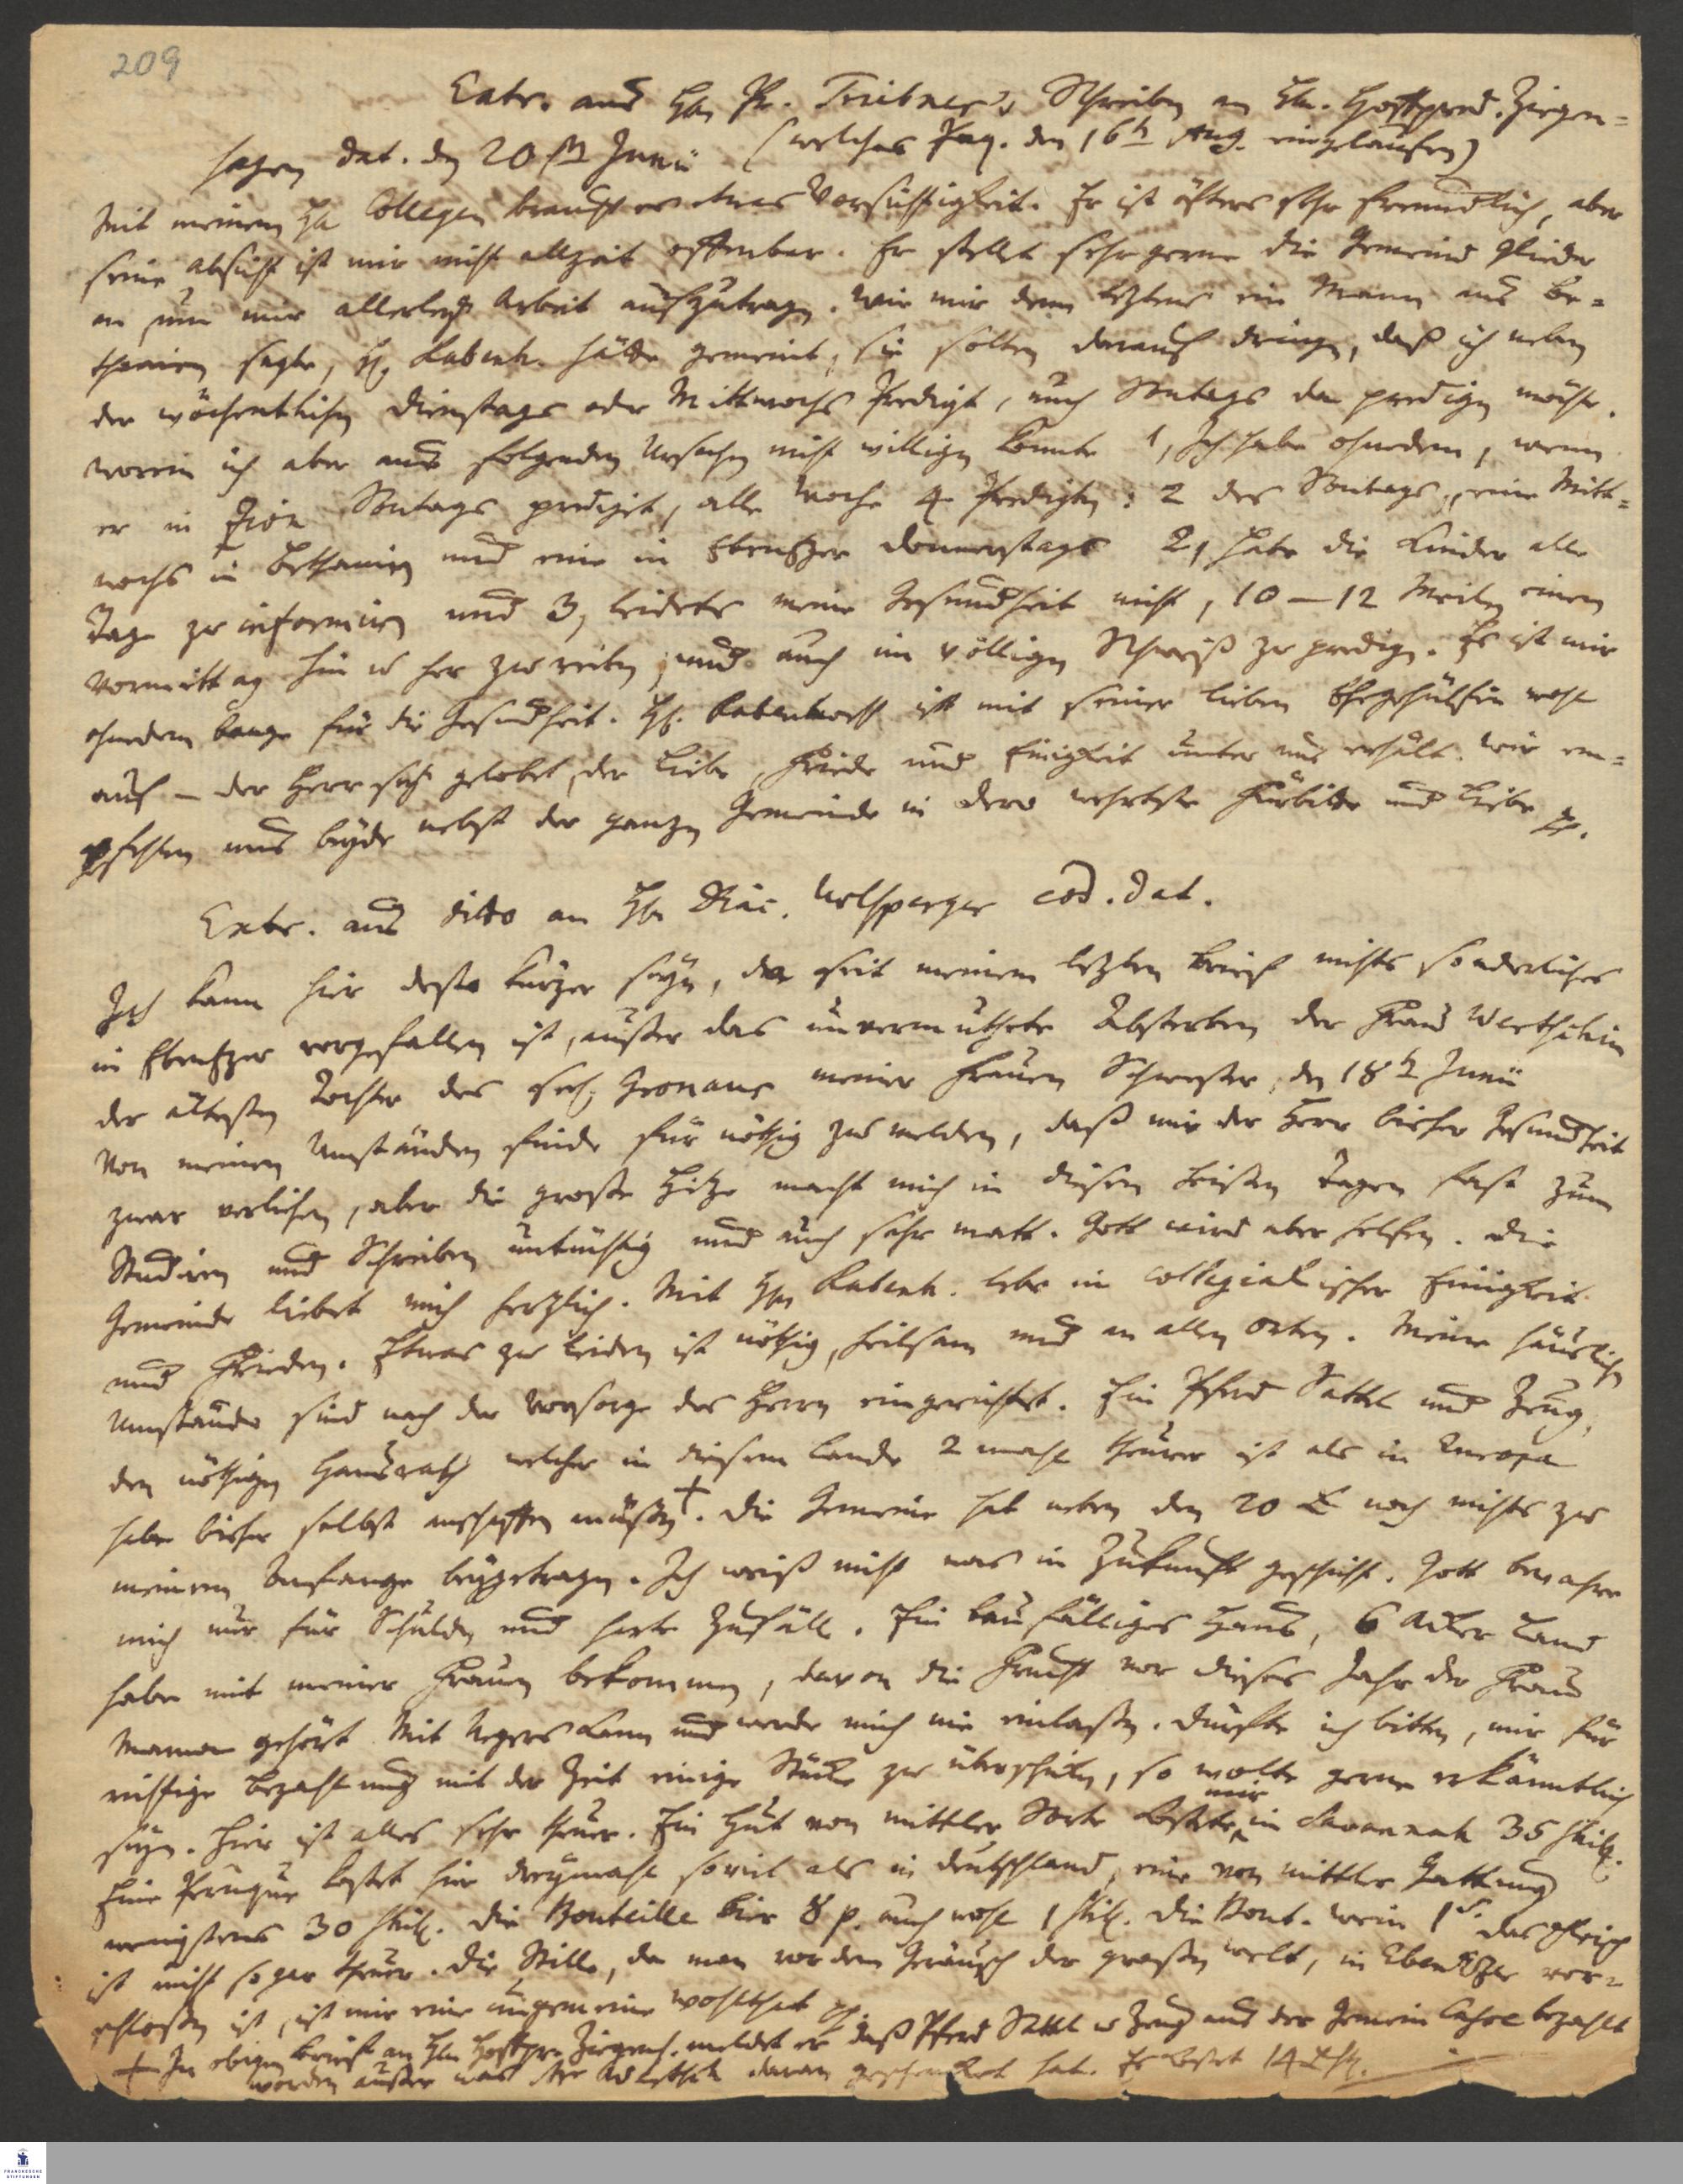 209
Extr. aus Hh Pr. Triebners Schreiben an Hln. Hoffpred. Ziegen=
hagen dat. den 20st Junii (welches Fag. den 16h Aug. eingelaufen)
Mit meinem HE Collegen brauchts etwas Vorsichtigkeit. Er ist öfters sehr freundlich, aber
seine absicht ist mir nicht allzeit offenbar. Er stellt sehr gerne die Gemeind Glieder
an um mir allerley Arbeit aufzutragen. Wie mir denn letztens ein Mann aus Be=
thanien sagte, H. Rabenh. hätte gemeint, sie solten darauf dringen, daß ich neben
der wöchentlichen Dienstags oder Mittwochs Predigt, auch Sontags da predigen möchte.
worein ich aber aus folgenden Ursachen nicht willigen konnte 1, Ich habe ohnedem, wenn
er in Zion Sontags prediget, alle Woche 4 Predigten: 2 des Sontags, eine Mitt=
wochs in Bethanien und eine in Ebenezer Donnerstags 2, habe die Kinder alle
Tage zu informiren und 3, leidets meine Gesundheit nicht, 10–12 Meilen einen
Vormittag hin u her zu reiten, und auch im völligen Schweiß zu predigen. Es ist mir
ohnedem bange für die Gesundheit. H. Rabenhorst ist mit seiner lieben Ehegehülfin wohl
auf – der Herr sey gelobet, der Liebe, Friede und Einigkeit unter uns erhält. Wir em=
pfehlen uns beyde nebst der ganzen Gemeinde in dero wehrteste Fürbitte und Liebe pp.
Extr. aus dito an Hh Diac. Urlsperger eod. dat.
Ich kann hier desto kürzer seyn, da seit meinem letzten Brief nichts sonderliches
in Ebenezer vorgefallen ist, außer das unvermuthete Absterben der Frau Wertschin
der ältesten Tochter des seel. Gronaus meiner Frauen Schwester, den 18h Junii
Von meinen Umständen finde für nöthig zu melden, daß mir der Herr bisher Gesundheit
zwar verliehen, aber die große Hitze macht mich in diesen heißen Tagen fast zum
Studiren und Schreiben untüchtig und auch sehr matt. Gott wird aber helfen. Die
Gemeinde liebet mich herzlich. Mit Hh Rabenh. lebe in collegialischer Einigkeit
und Frieden. Etwas zu leiden ist nöthig, heilsam und an allen Orten. Meine häuslichen
Umstände sind nach der Vorsorge des Herrn eingerichtet. Ein Pferd Sattel und Zeug,
den nöthigen Hausrath welcher in diesem Lande 2 mahl theurer ist als in Europa
habe bisher selbst anschaffen müßen+. Die Gemeine hat neben den 20 £ noch nichts zu
meinem Anfange beygetragen. Ich weiß nicht was in Zukunft geschieht. Gott bewahre
mich nur für Schulden und harte Zufälle. Ein baufälliges Haus, 6 Acker Land
habe mit meiner Frauen bekommen, davon die Frucht vor dieses Jahr der Frau
Mama gehört Mit Negers kann und werde mich nie einlaßen. Dürfte ich bitten, mir für
richtige Bezahlung mit der Zeit einige Stücke zu überschicken, so wolte gerne erkänntlich
seyn. Hier ist alles sehr theuer. Ein Hut von mittler Sorte kostete mir in Savannah 35 shill.
Eine Peruque kostet hier dreymahl soviel als in Deutschland, eine von mittler Gattung
wenigstens 30 shill. Die Bouteille Bier 8 p. auch wohl 1 shill. Die Bout. Wein 1s. das Fleisch
ist nicht so gar theuer. Die Stille, da man vor dem Geräusch der großen Welt, in Ebenezer ver=
schloßen ist, ist mir eine ungemeine Wohlthat
+ In obigem Brief an Hln Hoffpr. Ziegenh. meldet er daß Pferd Sattel u Zeug aus der Gemein Casse bezahlt
worden außer was daran geschenket hat. Es kostet 14 £ St.
FRANCKESCHE
STIFTUNGEN